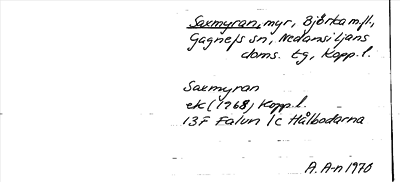 Saxmyran, myr, Björka m.fl.,
Gagnefs sn, Nedansiljans
doms. tg, Kopp. l.
Saxmyran
ek (1968) Kopp. l.
13F Falun 1c Hålbodarna
A. A-n 1970